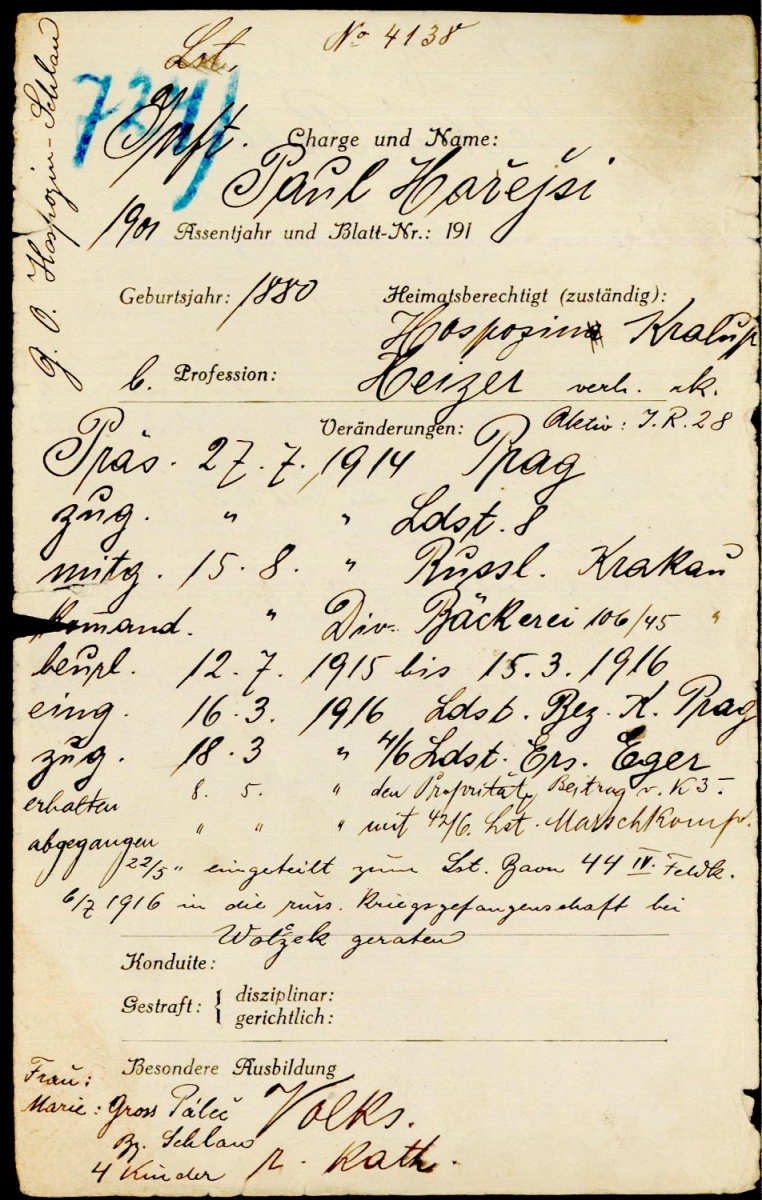 No 4138
Lst.
G. O. Hospozin-Schlau
Inft. Charge und Name:
Paul Hořejši
1901 Assentjahr und Blatt-Nr.: 191
Geburtsjahr: 1880 Heimatsberechtigt (zuständig):
Hospozin Kralup
b. Profession: Heizer verh. rk.
Veränderungen: Aktiv: I.R. 28
Präs. 27.7. 1914 Prag
zug. " " Ldst. 8
mitg. 15.8. " Russl. Krakau
komand. " Div. Bäckerei 106/45 "
beurl. 12.7. 1915 bis 15.3. 1916
eing. 16.3. 1916 Ldst. Bez. K. Prag
zug. 18.3 " 4/6 Ldst. Ers. Eger
erhalten 8. 5. " den Proprität. Beitrag v. K 3.-
abgegangen " " " mit 42/6. Lst. Marschkomp.
22/5 " eingeteilt zum Lst. Baon 44 IV. Feldk.
6/7 1916 in die russ. Kriegsgefangenschaft bei
geraten
Konduite:
Gestraft: { disziplinar:
gerichtlich:
Besondere Ausbildung
Frau:
Marie: Gross Páleč
Bz. Schlau
4 Kinder
Volks.
r. Kath.